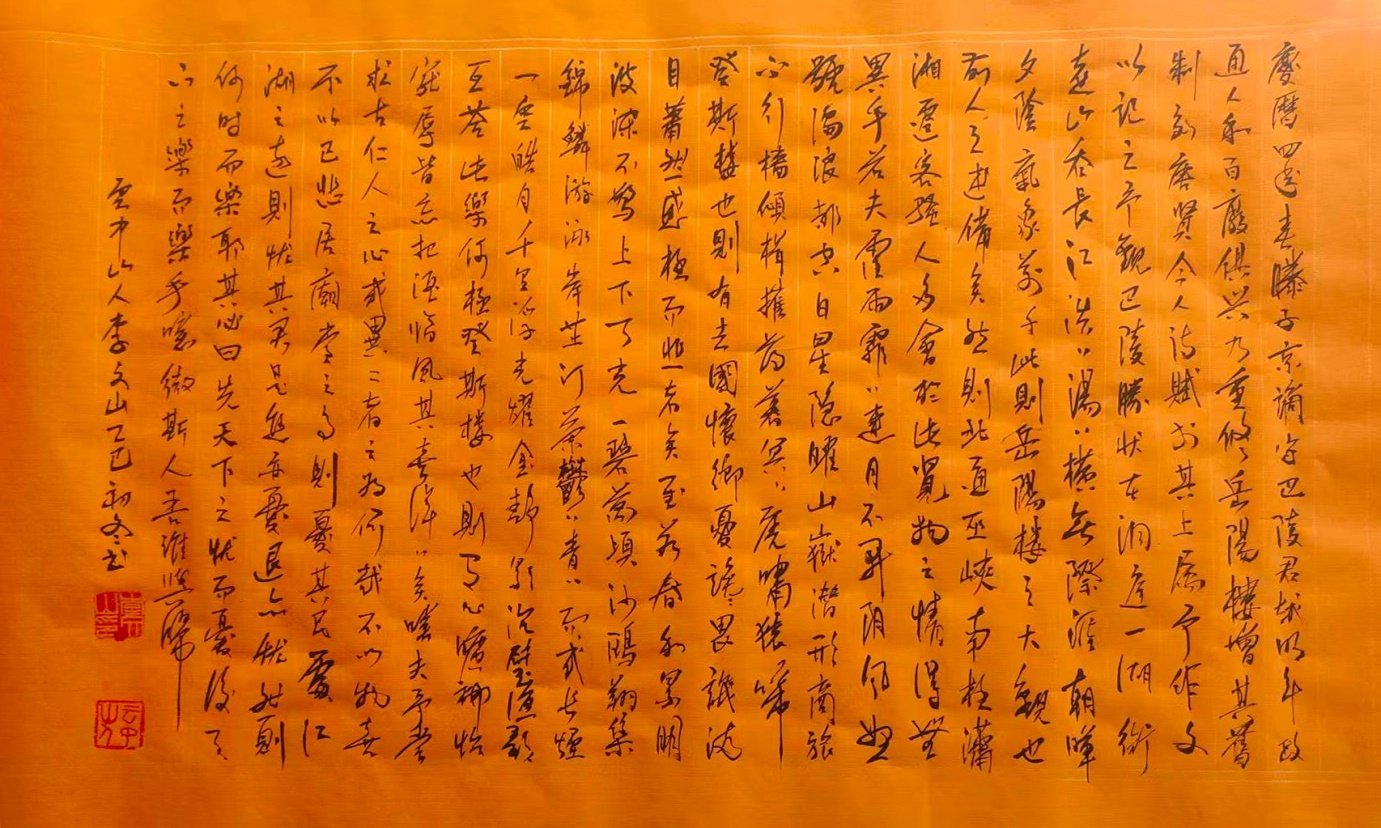 慶曆四年春滕子京謫守巴陵君越明年政
通人和百廢俱興乃重修岳陽樓增其舊
制刻唐賢今人詩賦於其上屬予作文
以記之予觀巴陵勝狀在洞庭一湖銜
遠山吞長江浩〻湯〻橫無際涯朝暉
夕陰氣象萬千此則岳陽樓之大觀也
前人之述備矣然則北通巫峽南極瀟
湘遷客騷人多會於此覽物之情得無
異乎若夫霪雨霏〻連月不開陰風怒
號濁浪排空日星隱曜山嶽潛形商旅
不行檣傾楫摧薄暮冥〻虎嘯猿啼
登斯樓也則有去國懷鄉憂讒畏譏滿
目蕭然感極而悲者矣至若春和景明
波瀾不驚上下天光一碧萬頃沙鷗翔集
錦鱗游泳岸芷汀蘭鬱〻青〻而或長煙
一空皓月千里浮光耀金靜影沉璧漁歌
互答此樂何極登斯樓也則有心曠神怡
寵辱皆忘把酒臨風其喜洋〻矣嗟夫予嘗
求古仁人之心或異二者之為何哉不以物喜
不以己悲居廟堂之高則憂其民處江
湖之遠則憂其君是進亦憂退亦憂然則
何時而樂耶其必曰先天下之憂而憂後天
下之樂而樂乎噫微斯人吾誰與歸
雲中山人李文山乙巳初冬書